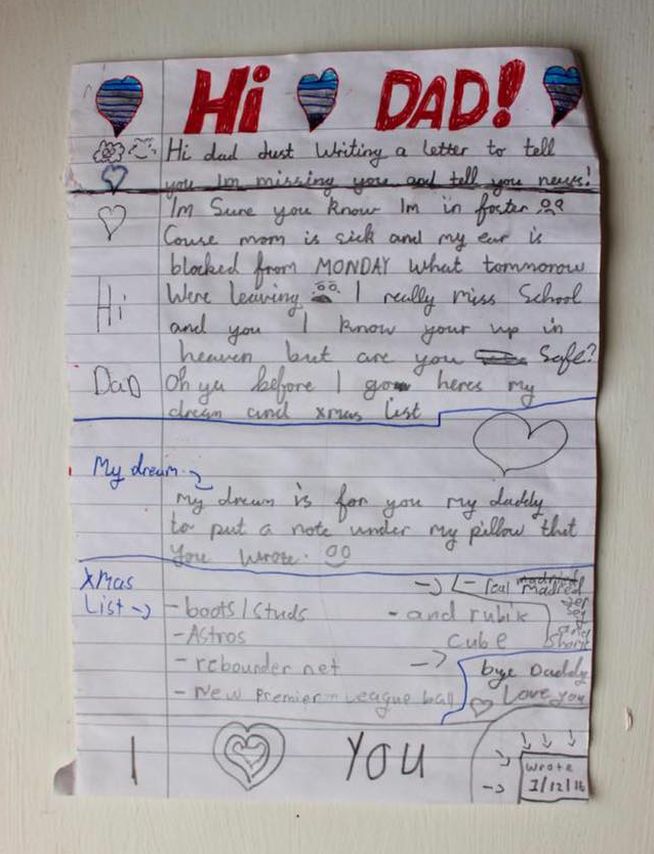 Hi DAD!
Hi dad Just Writing a letter to tell
you Im missing you and tell you news!
Im Sure you know Im in foster
Couse mom is sick and my ear is
blocked from MONDAY What tommorow
Were leaving I really miss School
Hi
and you I know your up in
heaven but are you Safe?
Dad
Oh ya before I go heres my
dream and xmas list
My dream
My dream is for you my daddy
to put a note under my pillow that
you wrote.
Xmas
List
- real madrid
jersey
and
shorts
- boots/studs
- and rubik
cube
- Astros
- rebounder net
- New Premier League ball
bye Daddy
Love you
I YOU
wrote
1/12/16